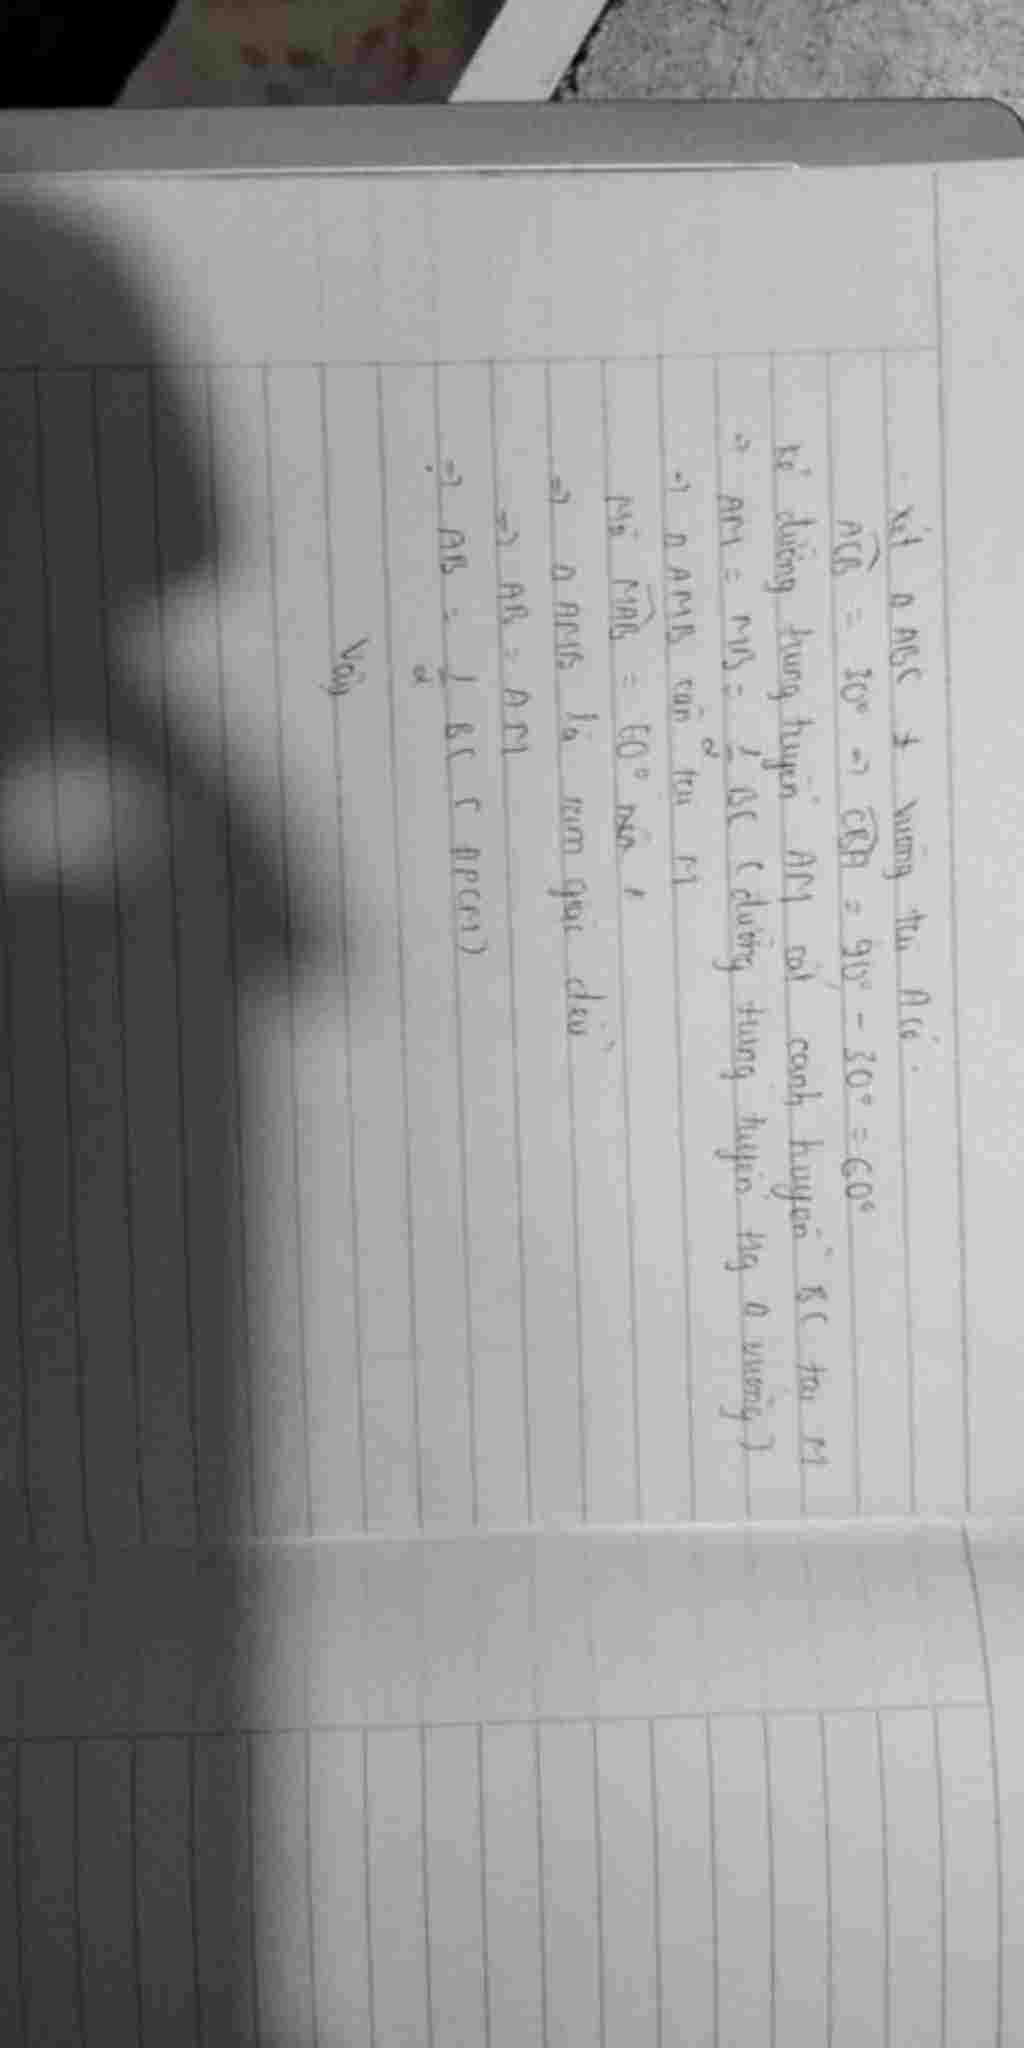 Xét Δ ABC ⊥ vuông tại A có.
ACB = 30° => CBA = 90° - 30° = 60°
Kẻ đường trung tuyến AM cắt cạnh huyền BC tại M
=> AM = MB = 1/2 BC (đường trung tuyến trg Δ vuông)
=> Δ AMB cân tại M
Mà MAB = 60° nên
=> Δ AMB là tam giác đều
=> AB = AM
=> AB = 1/2 BC ( ĐPCM)
Vậy